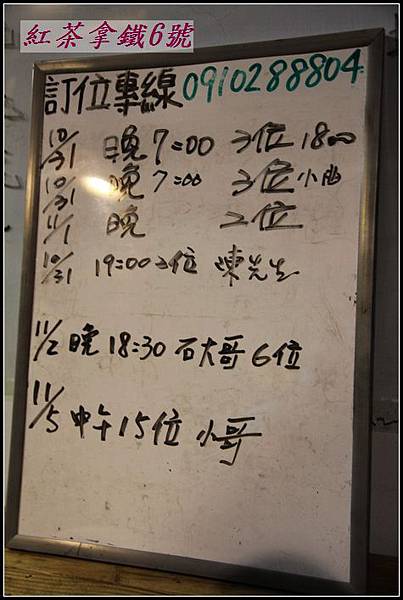 紅茶拿鐵6號
訂位專線0910288804
10/31 晚7:00 2位 1800
10/31 晚7:00 3位 小
11/1 晚 2位
10/31 19:00 2位 陳先生
11/2 晚18:30 石大哥6位
11/5 中午15位 小哥